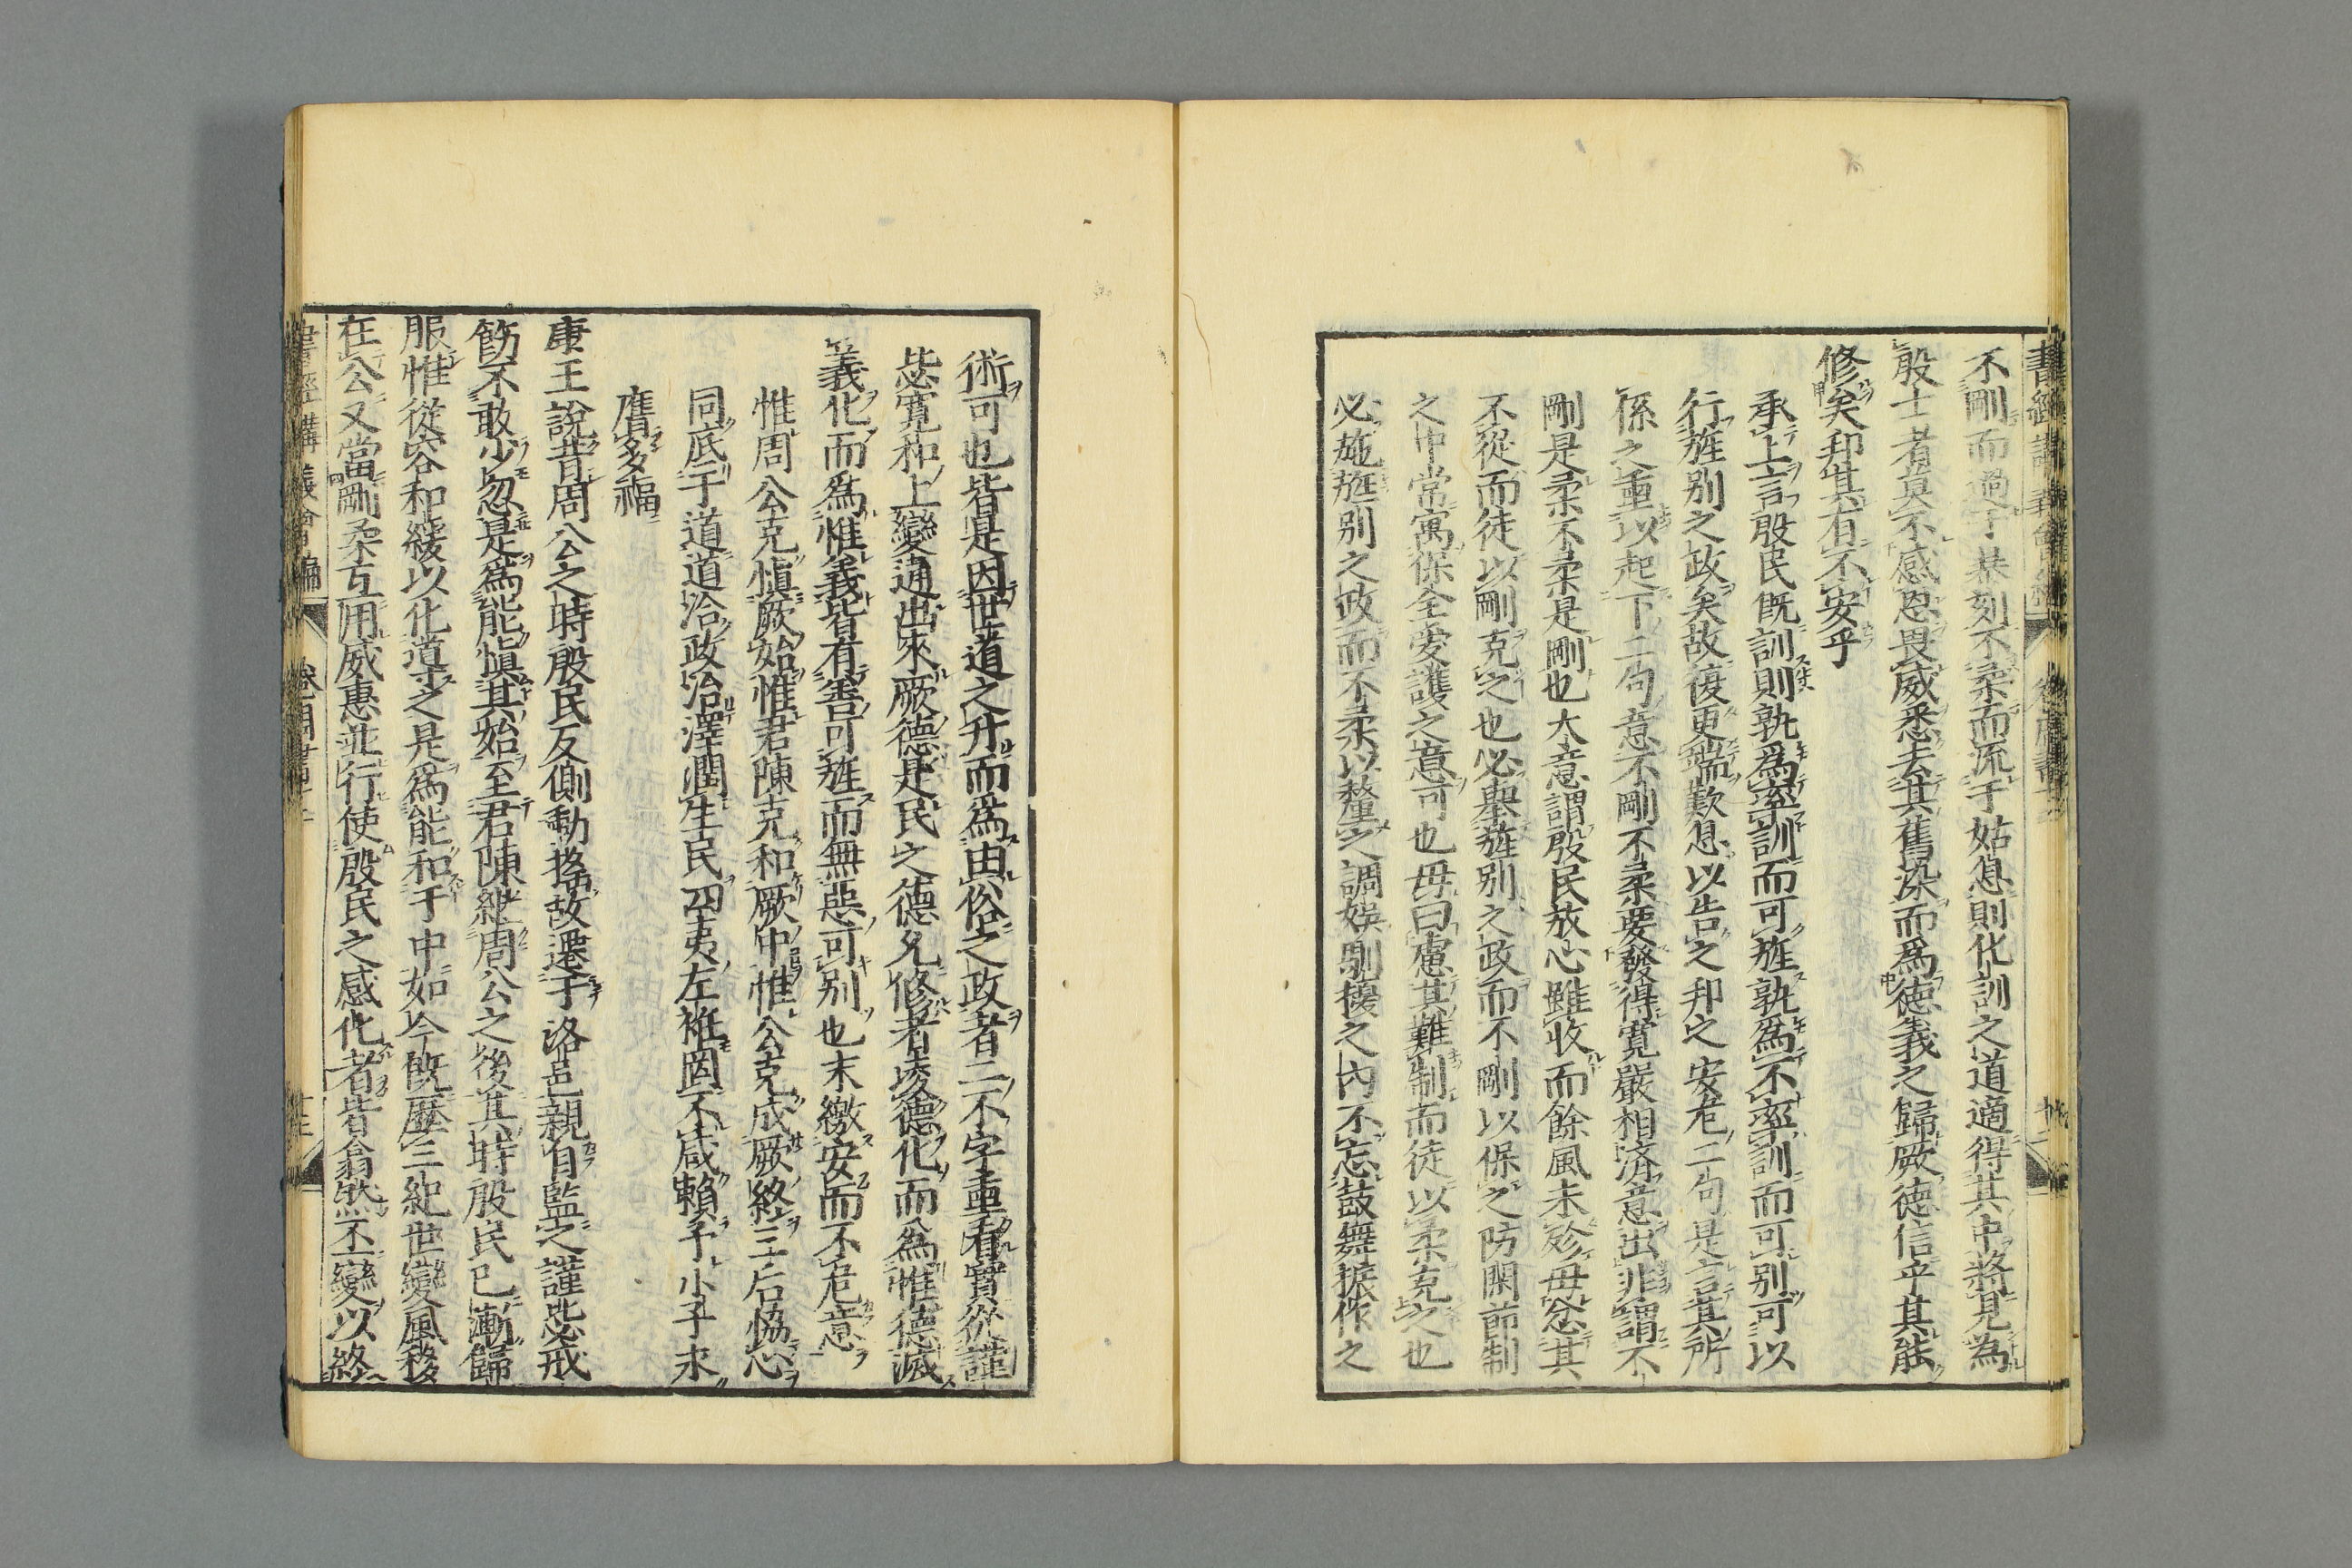 不剛而過于暴刻不柔而流于姑息則化訓之道適得其中將見為
殷士者莫不感恩畏威悉去其舊染而為德義之歸厥德信乎其能
修矣邦其有不安乎
承上言殷民既訓則孰為率訓而可旌孰為不率訓而可別可以
行旌別之政矣故復更端歎息以告之邦之安危二句是言其所
係之重以起下二句意不剛不柔要發得寬嚴相済意出非謂不
剛是柔不柔是剛也大意謂殷民放心雖收而餘風未殄毋忿其
不從而徒以剛克之也必舉旌別之政而不剛以保之防閑節制
之中常寓保全愛護之意可也毋曰慮其難制而徒以柔克之也
必施旌别之政而不柔以釐之調娛馴擾之內不忘鼓舞振作之
術可也皆是因世道之升而為由俗之政者二不字重看實從謹
毖寬和上變通出來厥德是民之德允修者凌德化而為惟德滅
義化而為惟義皆有善可旌而無惡可別也末繳安而不危意
惟周公克愼厥始惟君陳克和厥中惟公克成厥終三后恊心
同底于道道洽政治澤潤生民四夷左衽罔不咸賴予小子永
膺多福
康王說昔周公之時殷民反側動搖故遷于洛邑親自監之謹毖戒
飭不敢少忽是為能愼其始至君陳繼周公之後其時殷民已漸歸
服惟從容和緩以化導之是為能和于中如今既歷三紀世變風移
在公又當剛柔互用威惠並行使殷民之感化者皆翕然丕變以終
書經講義會編 卷 周書 十三